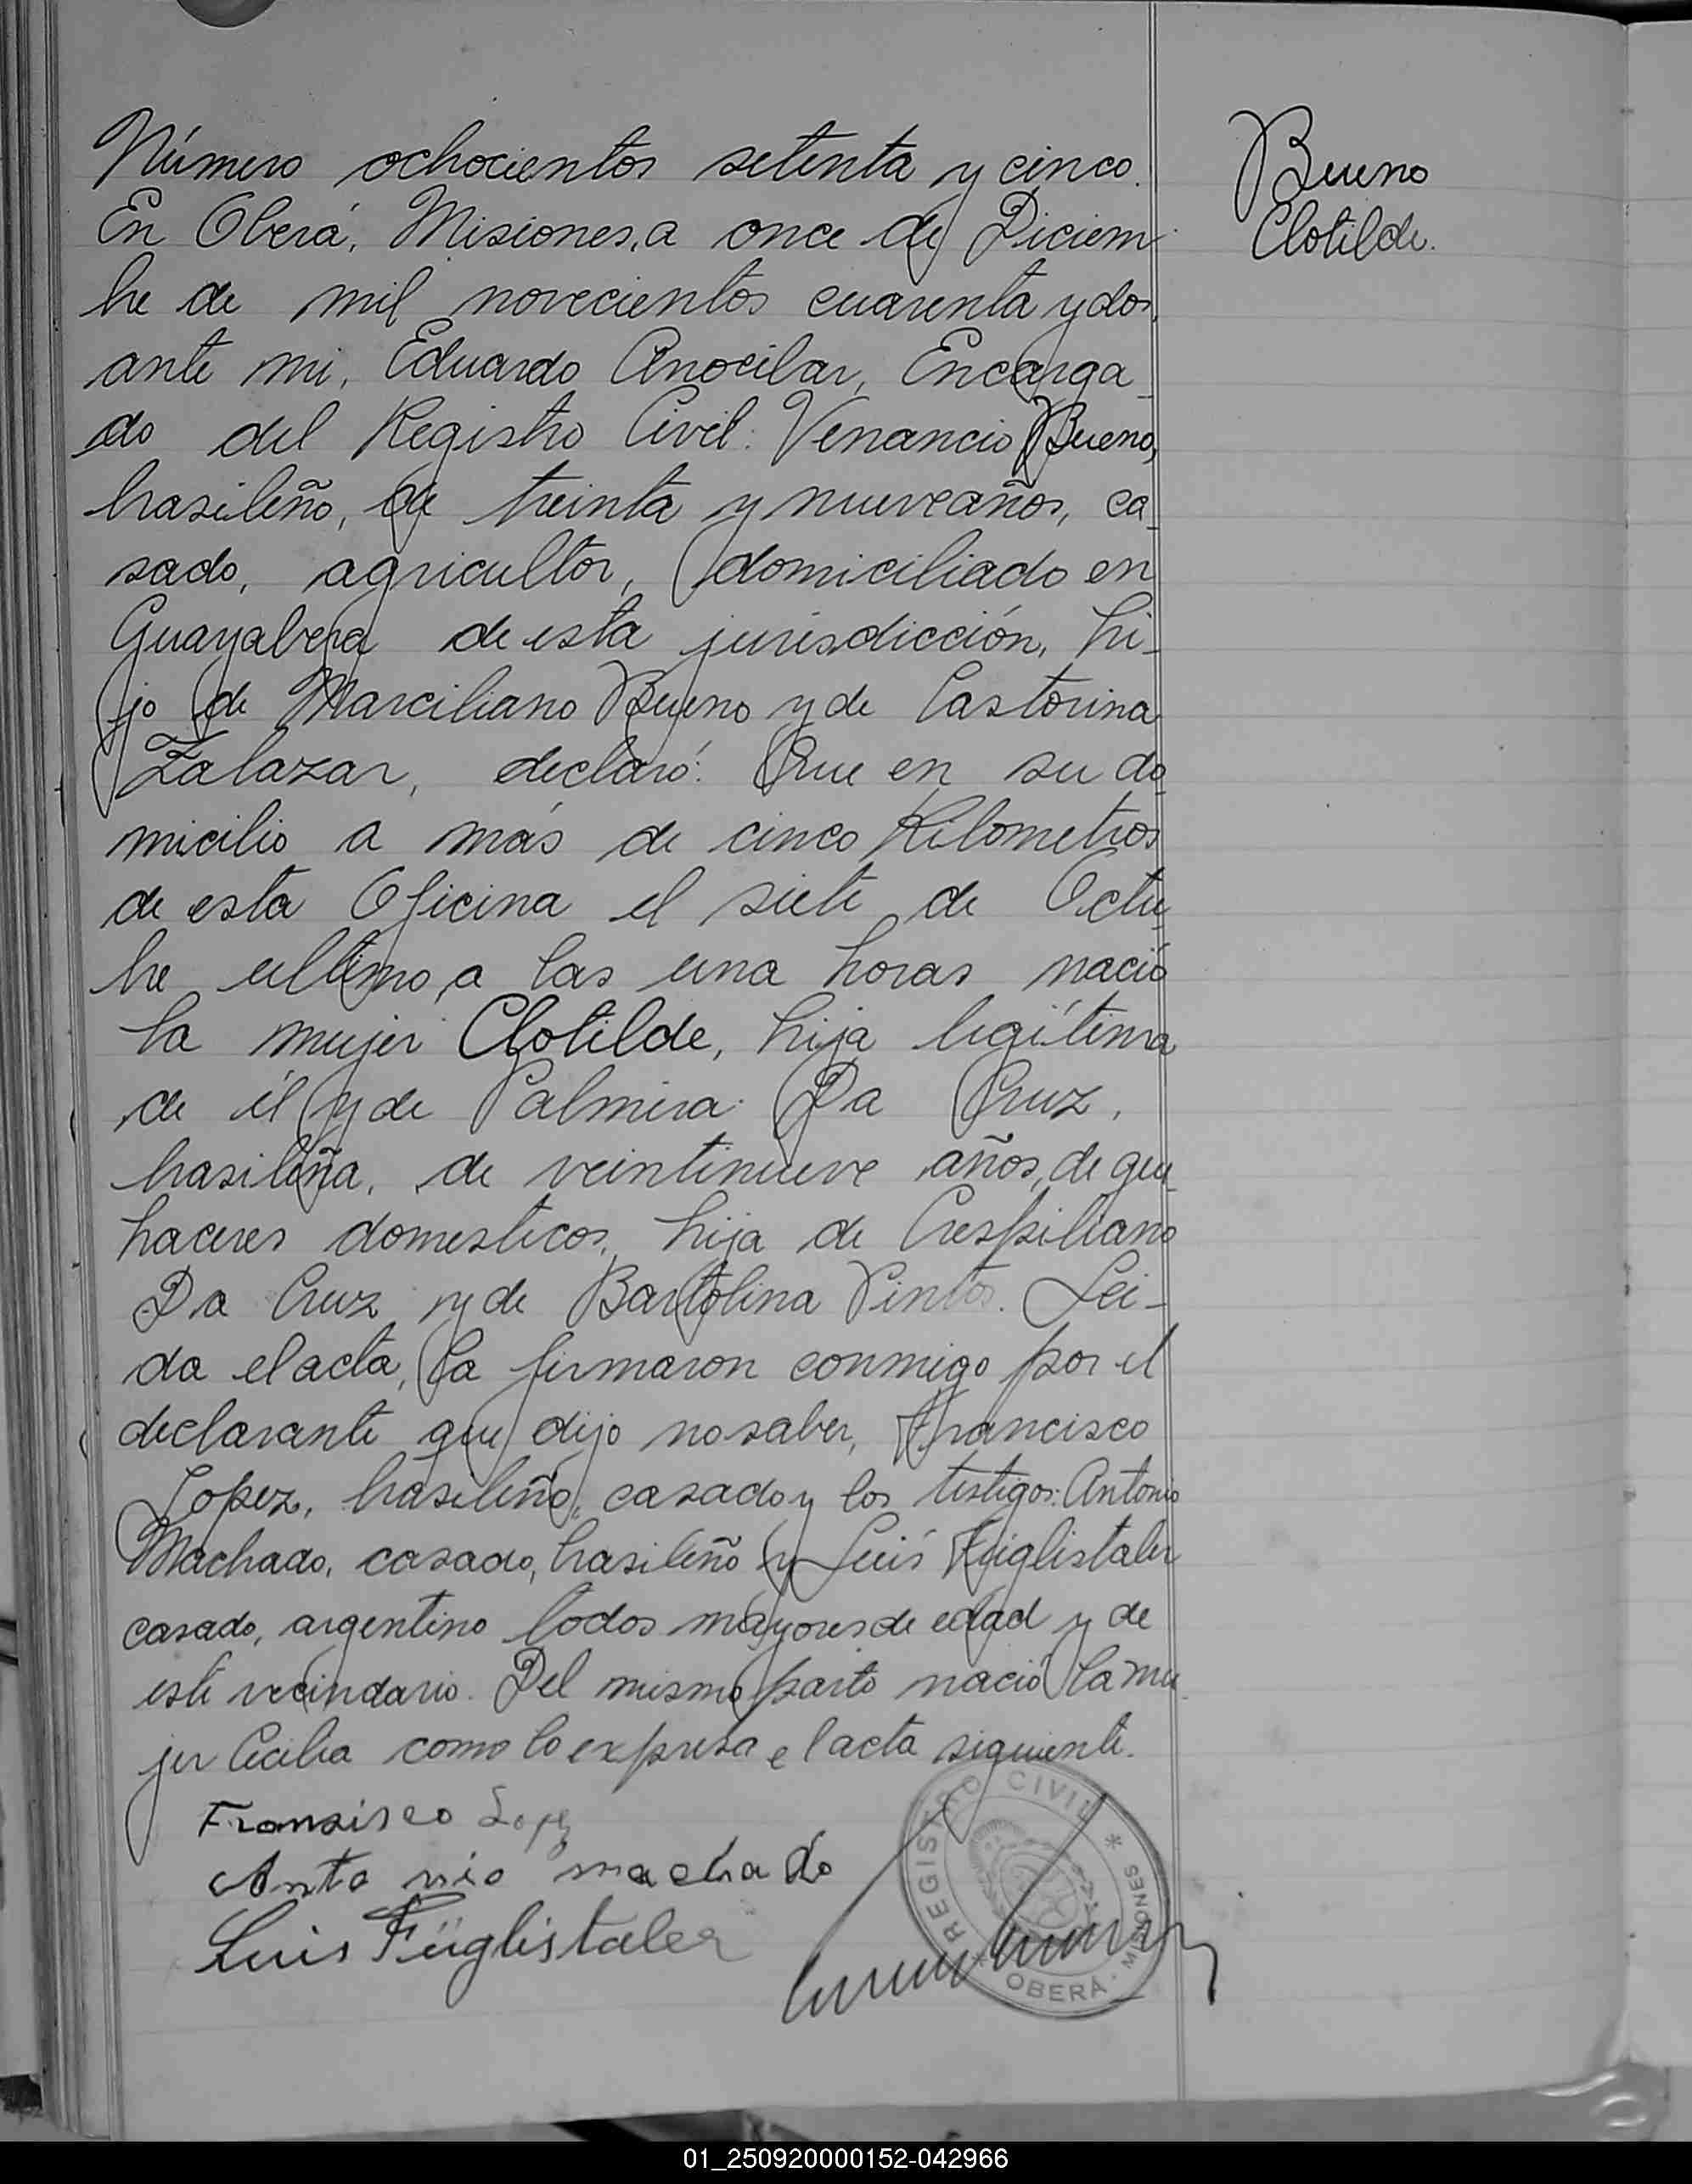 Número ochocientos setenta y cinco.
Bueno
Clotilde.
En Oberá, Misiones, a once de Diciem-
bre de mil novecientos cuarenta y dos,
ante mi, Eduardo Anocibar, Encarga-
do del Registro Civil: Venancio Bueno,
brasileño, de treinta y nueve años, ca-
sado, agricultor, domiciliado en
Guayabera de esta jurisdicción, hi-
jo de Marciliano Bueno y de Castorina
Zalazar, declaró: Que en su do-
micilio a más de cinco Kilometros
de esta Oficina el siete de Octu-
bre ultimo, a las una horas nació
la mujer Clotilde, hija legítima
de él y de Palmira Da Cruz,
brasileña, de veintinueve años, de que-
haceres domesticos, hija de Crespiliano
Da Cruz y de Bartolina Pintos. Lei-
da el acta, la firmaron conmigo por el
declarante que dijo no saber, Francisco
Lopez, brasileño, casado y los testigos: Antonio
Machado, casado, brasileño y Luis Füglistaler
casado, argentino todos mayores de edad y de
este vecindario. Del mismo parto nació la mu-
jer Cecilia como lo expresa el acta siguiente.
Fransisco Lopez
Antonio machado
Luis Füglistaler
REGISTRO CIVIL * MISIONES
* OBERÁ -
01_250920000152-042966